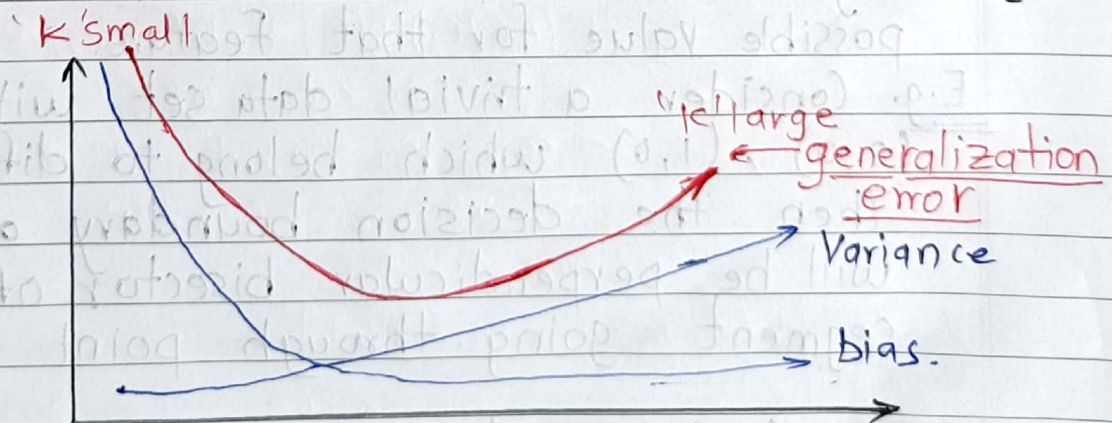 'K' small
"k" large
generalization
error
Variance
bias.